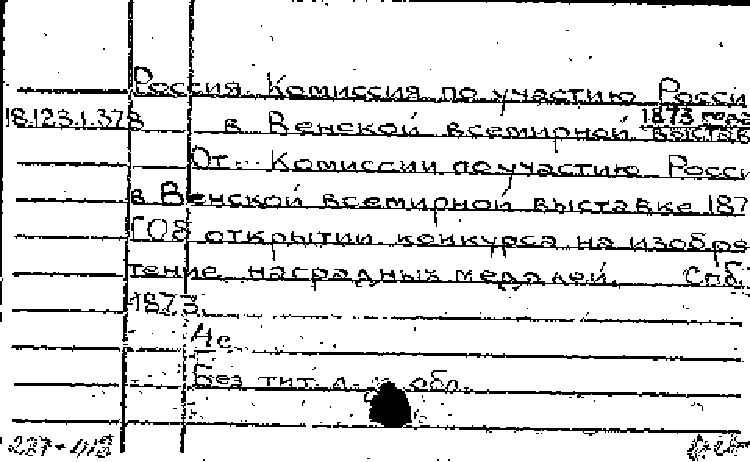 Россия. Комиссия по участию Росси
18.123.1.378 в Венской всемирной 1873 года выстав
От... Комиссии по участию Росси
в Венской всемирной выставке 187
год об открытии конкурса на изобре
тение наградных медалей. Спб.,
1873.
4с.
Без тит. л. и обл.
237-413